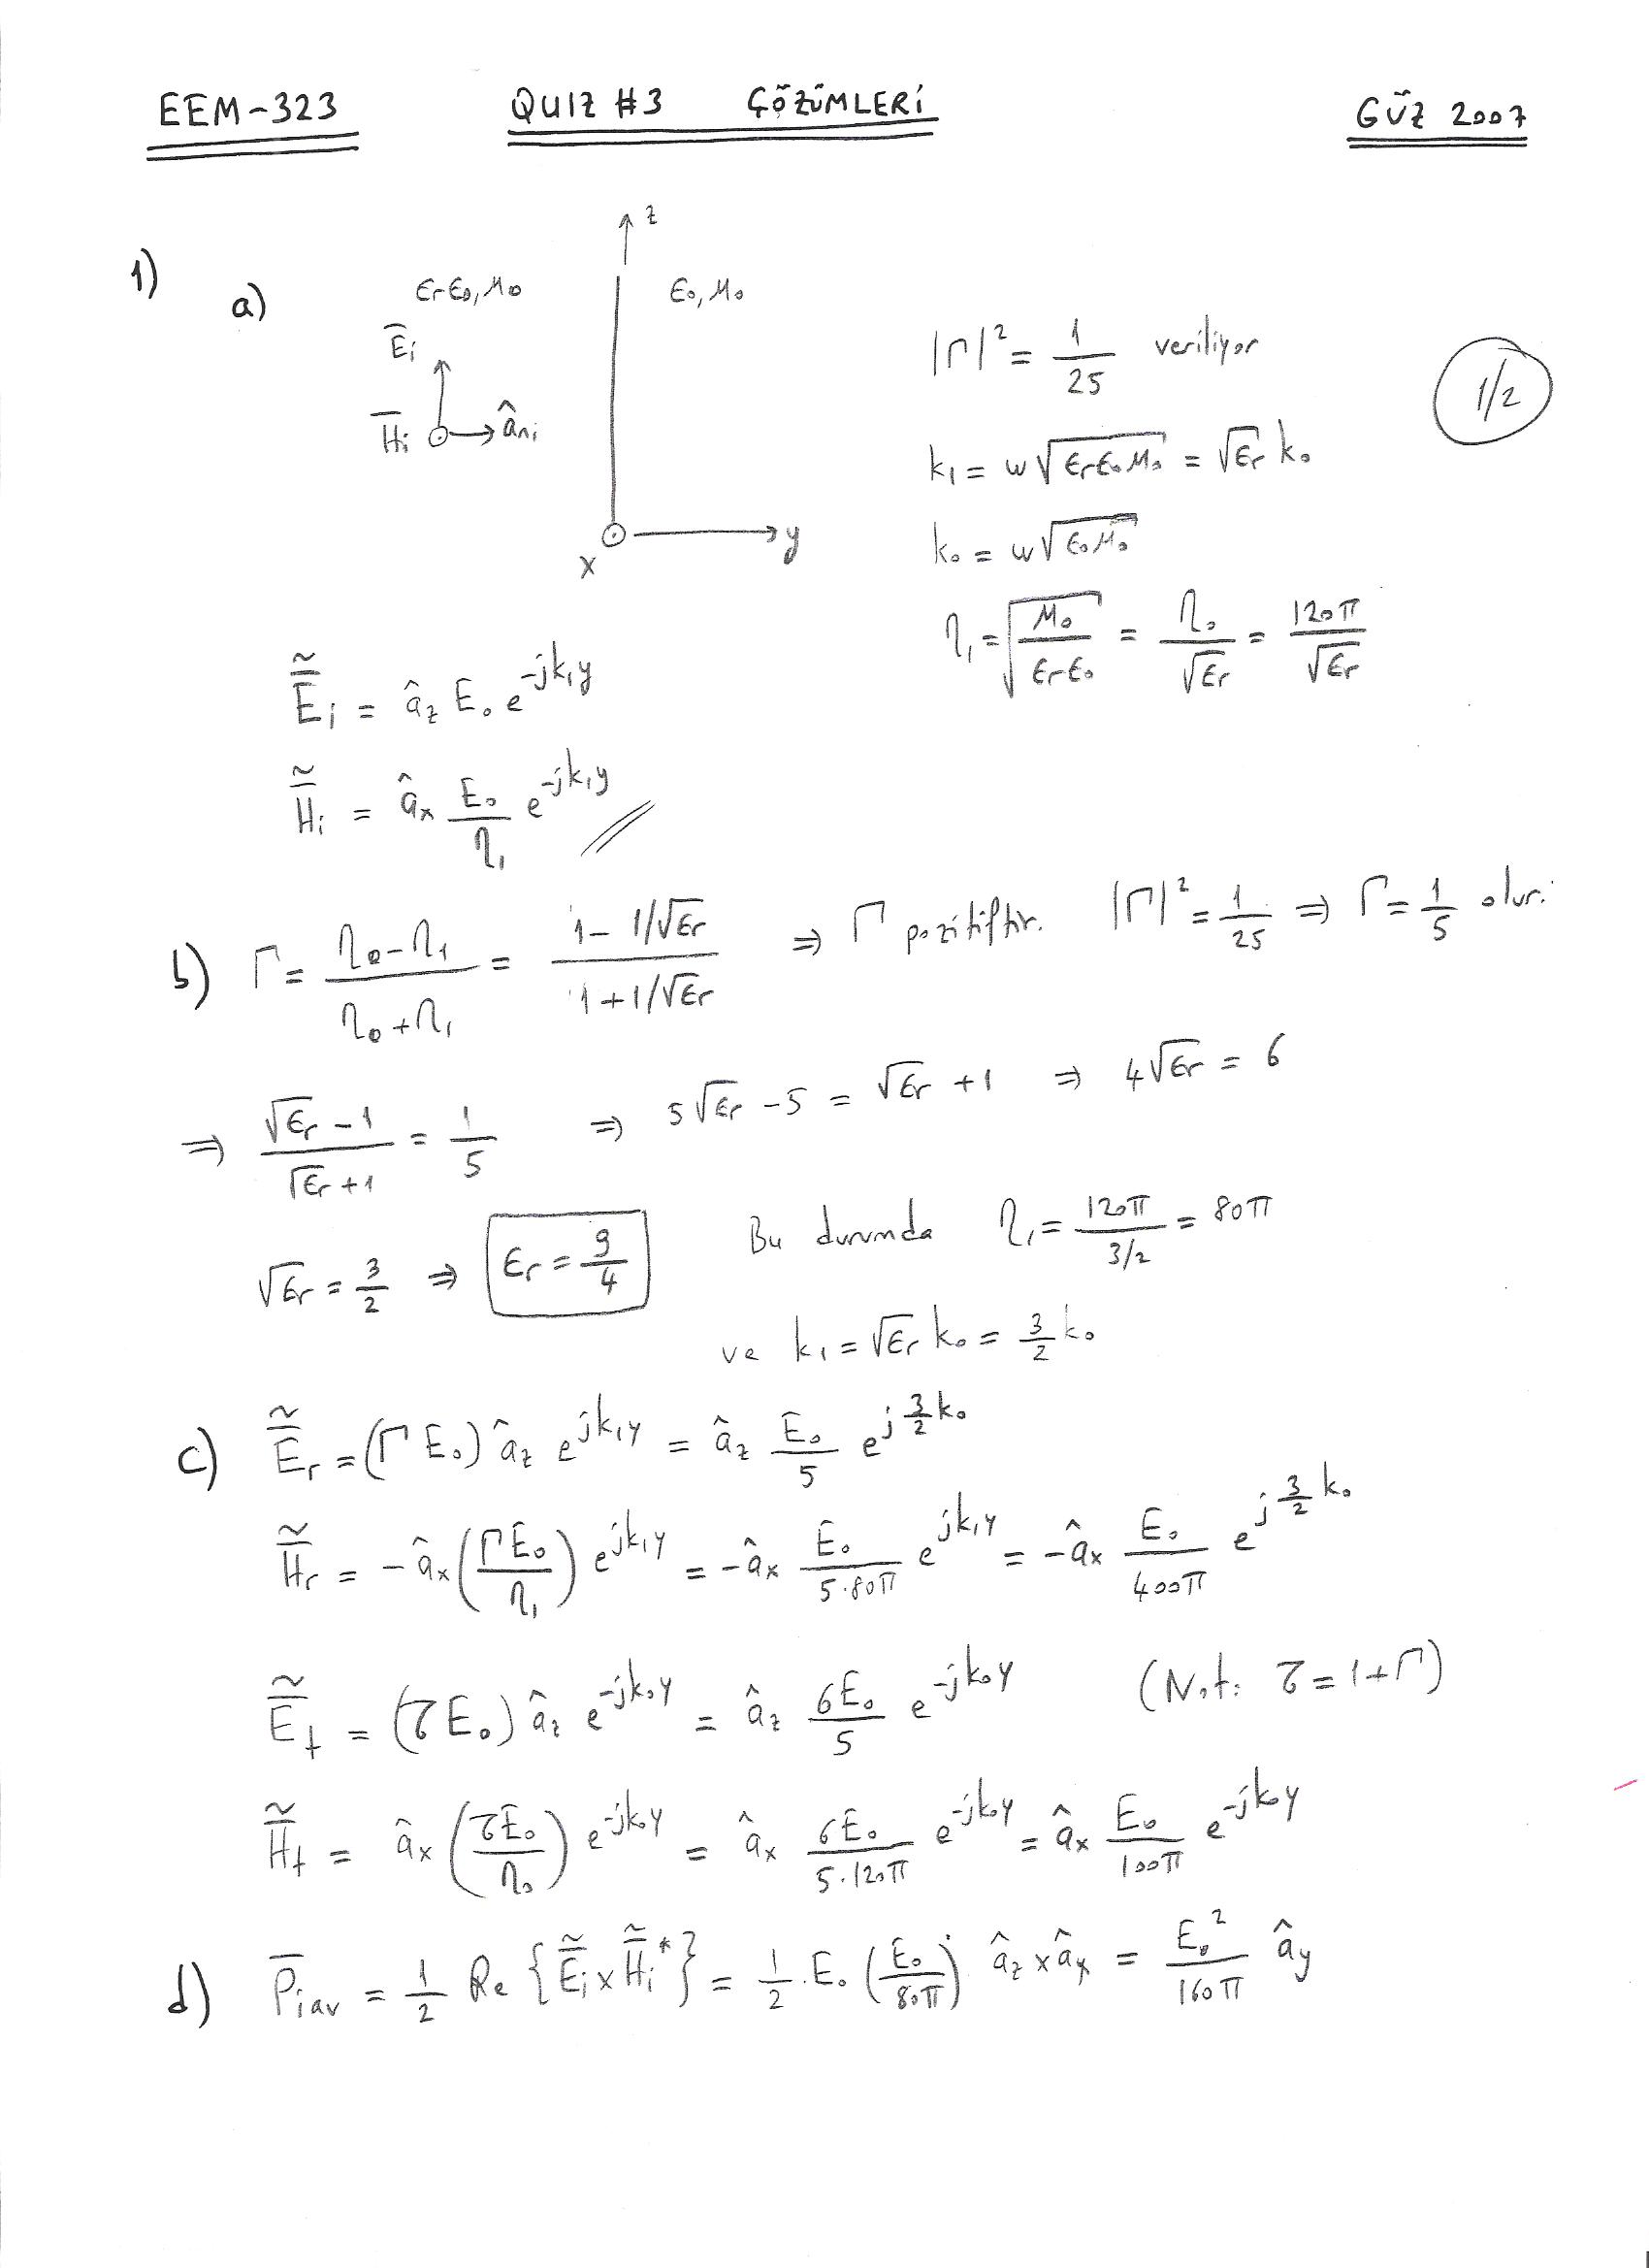 EEM-323 QUIZ #3 ÇÖZÜMLERİ GÜZ 2007
1) a)
z
ϵrϵ0, μ0 ϵ0, μ0
E̅i
H̅i â_ni
x y
|Γ|² = 1/25 veriliyor
1/2
k1 = w√(ϵrϵ0μ0) = √ϵr k0
k0 = w√(ϵ0μ0)
η1 = √(μ0/(ϵrϵ0)) = η0/√ϵr = 120π/√ϵr
Ẽ̅i = âz E0 e^(-jk1y)
H̃̅i = âx (E0/η1) e^(-jk1y) //
b) Γ = (η0-η1)/(η0+η1) = (1-1/√ϵr)/(1+1/√ϵr) ⇒ Γ pozitiftir. |Γ|² = 1/25 ⇒ Γ = 1/5 olur.
⇒ (√ϵr-1)/(√ϵr+1) = 1/5 ⇒ 5√ϵr-5 = √ϵr+1 ⇒ 4√ϵr = 6
√ϵr = 3/2 ⇒ ϵr = 9/4 Bu durumda η1 = 120π/(3/2) = 80π
ve k1 = √ϵr k0 = 3/2 k0
c) Ẽ̅r = (ΓE0) âz e^(jk1y) = âz (E0/5) e^(j(3/2)k0)
H̃̅r = -âx (ΓE0/η1) e^(jk1y) = -âx (E0/(5·80π)) e^(jk1y) = -âx (E0/400π) e^(j(3/2)k0)
Ẽ̅t = (τE0) âz e^(-jk0y) = âz (6E0/5) e^(-jk0y) (Not: τ = 1+Γ)
H̃̅t = âx (τE0/η0) e^(-jk0y) = âx (6E0/(5·120π)) e^(-jk0y) = âx (E0/100π) e^(-jk0y)
d) P̅iav = 1/2 Re{Ẽ̅i × H̃̅i*} = 1/2·E0 (E0/80π) âz×âx = (E0²/160π) ây